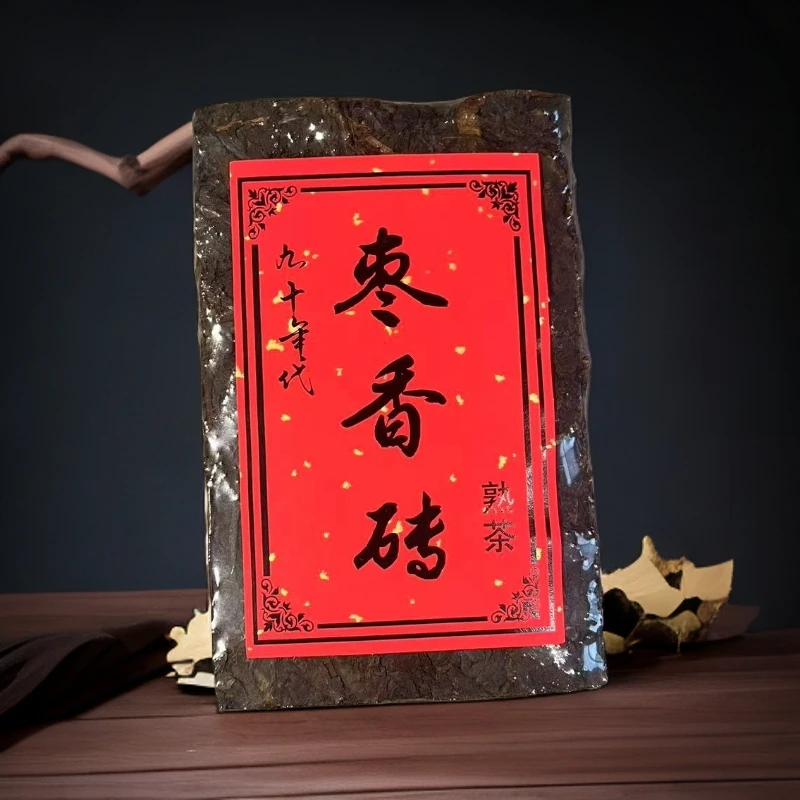 枣香砖
九十年代
熟茶